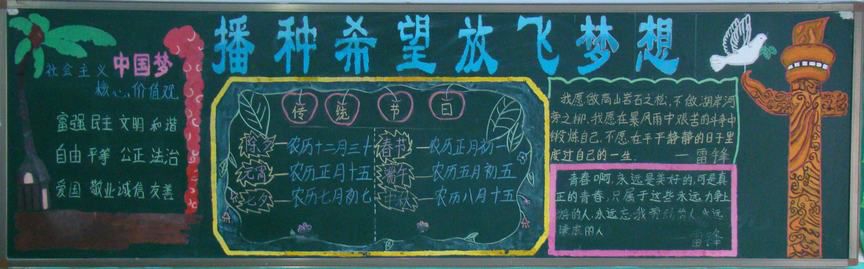 播种希望放飞梦想
社会主义 中国梦
核心价值观
富强 民主 文明 和谐
自由 平等 公正 法治
爱国 敬业 诚信 友善
传统节日
除夕—农历十二月三十
元宵—农历正月十五
七夕—农历七月初七
春节—农历正月初一
端午—农历五月初五
中秋—农历八月十五
我愿做高山岩石之松,不做湖岸河
旁之柳。我愿在暴风雨中艰苦的斗争中
锻炼自己,不愿在平平静静的日子里
度过自己的一生。 —雷锋
青春啊,永远是美好的,可是真
正的青春,只属于这些永远力争上
游的人,永远忘我劳动的人,永远
谦虚的人
雷锋